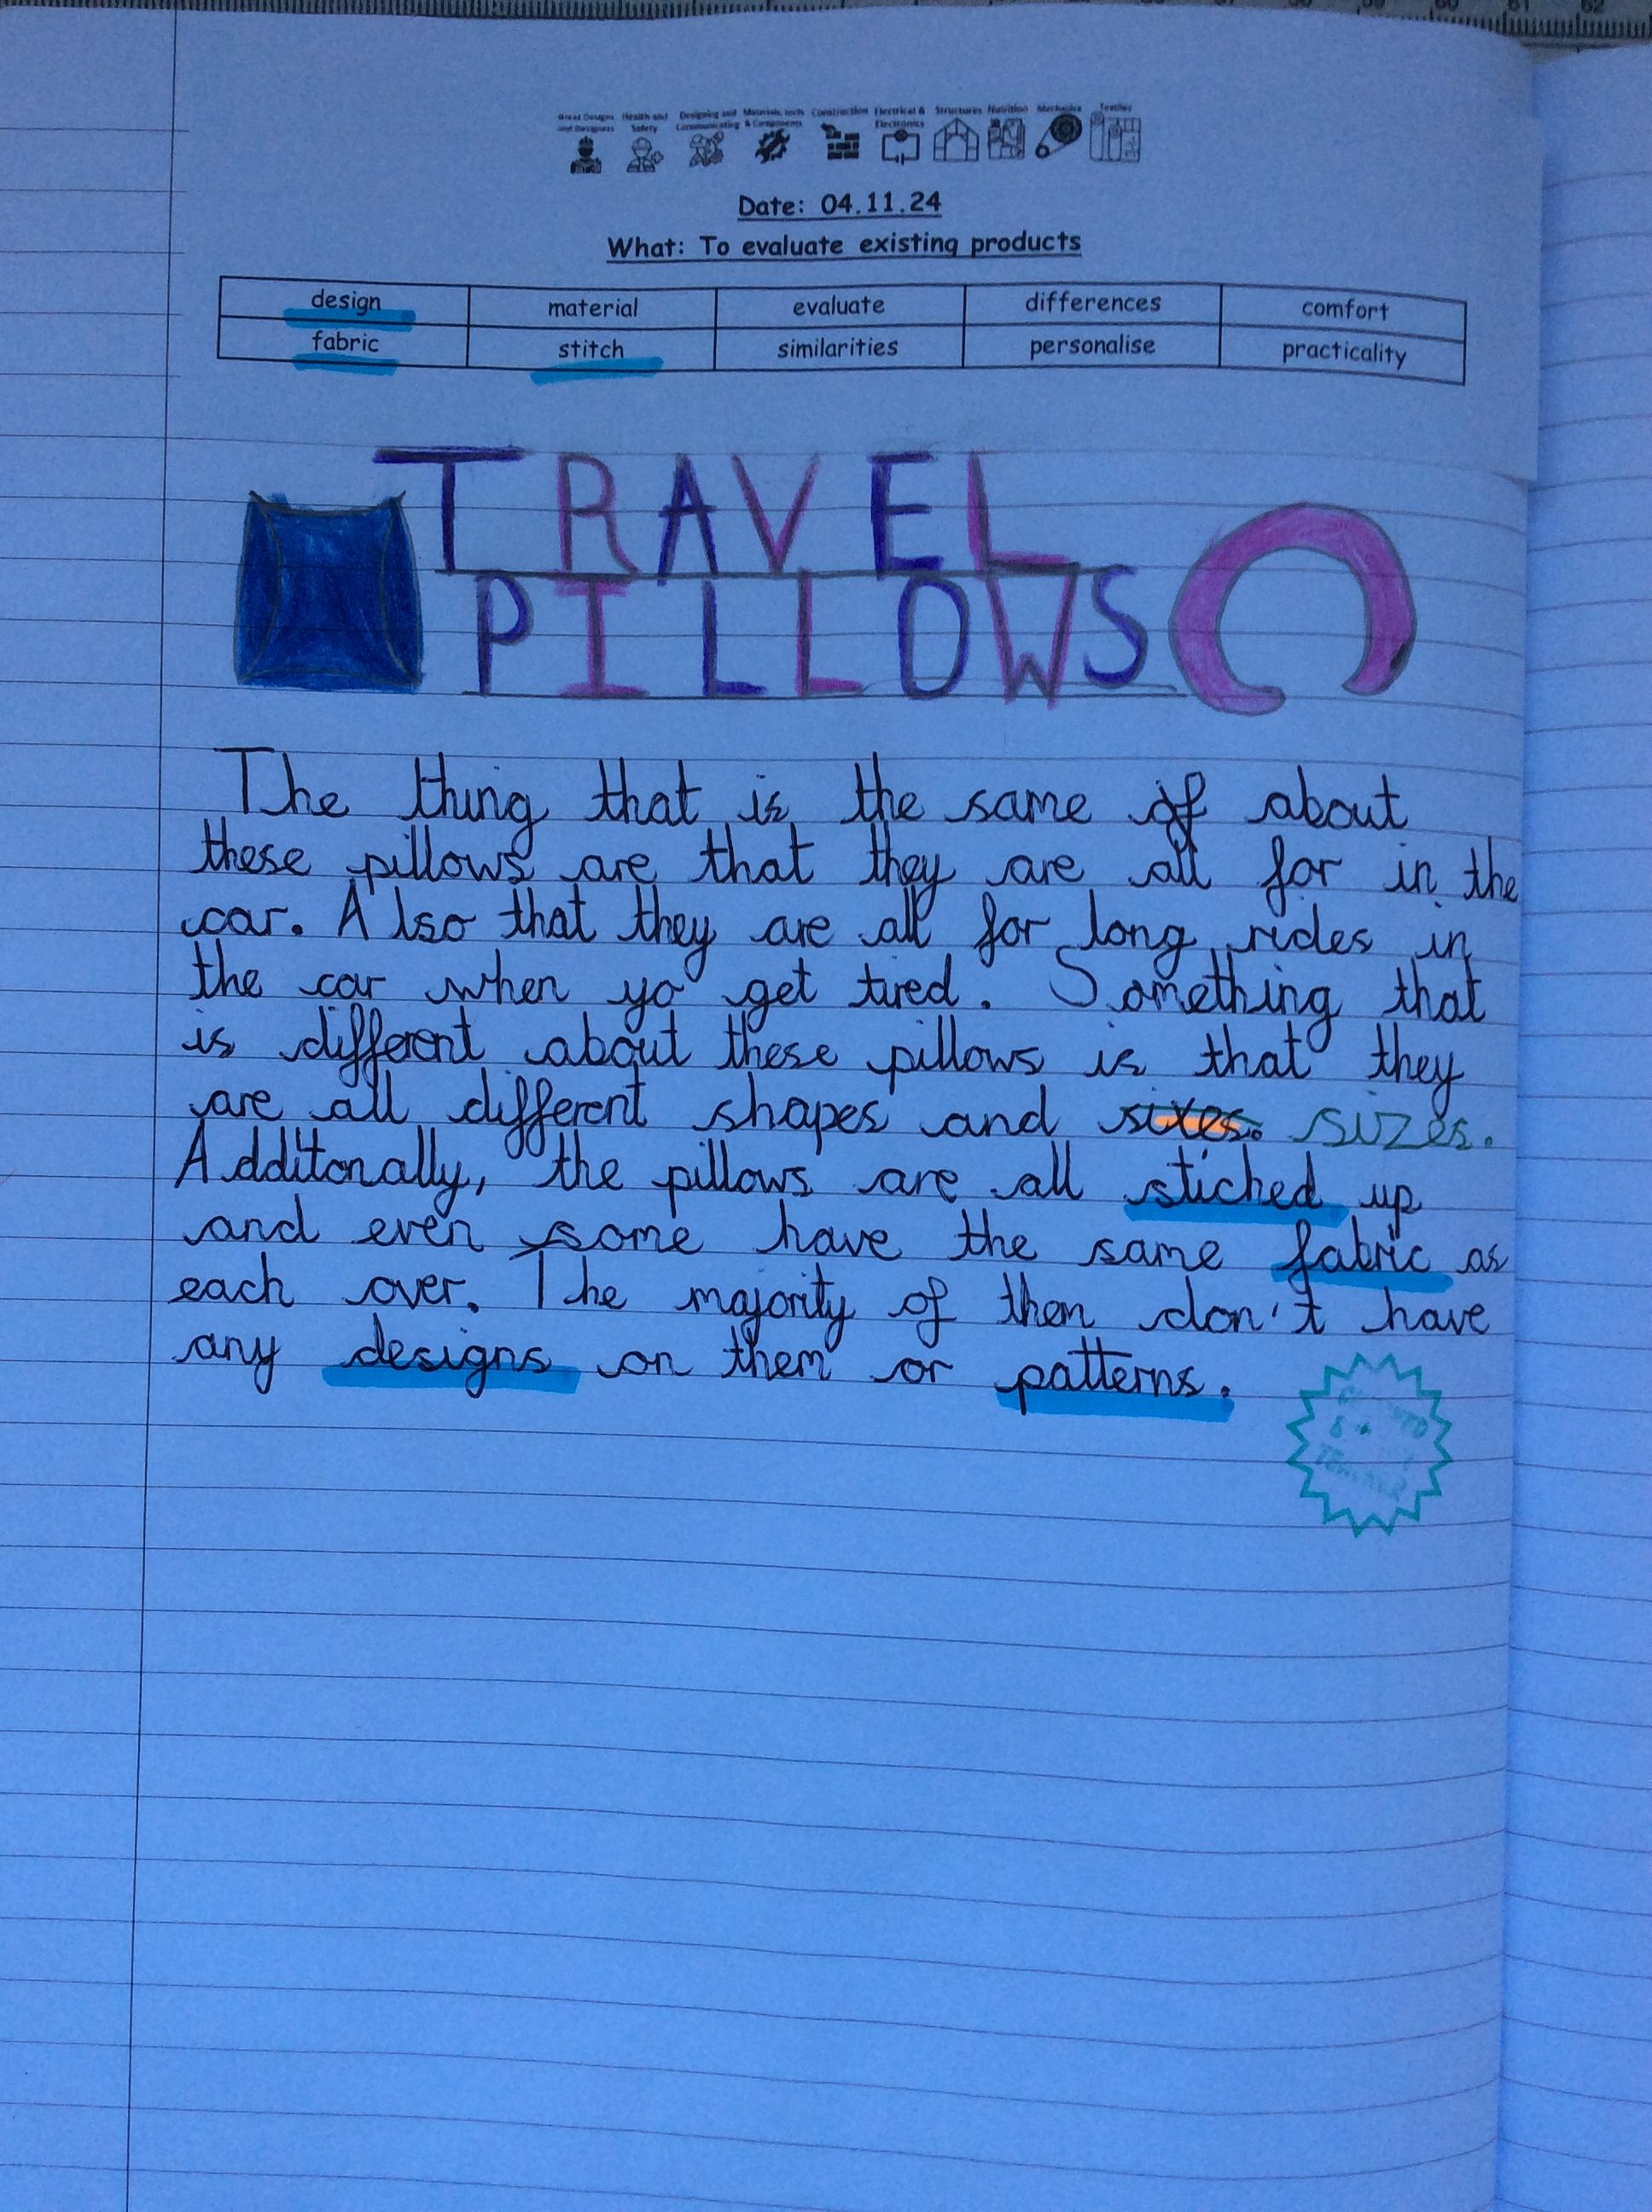 Great Designs and Designers
Health and Safety
Designing and Communicating
Materials, tools & Components
Construction
Electrical & Electronics
Structures
Nutrition
Mechanics
Textiles
Date: 04.11.24
What: To evaluate existing products
design material evaluate differences comfort
fabric stitch similarities personalise practicality
TRAVEL
PILLOWS
The thing that is the same of about
these pillows are that they are all for in the
car. Also that they are all for long rides in
the car when yo get tired. Something that
is different about these pillows is that they
are all different shapes and sixes. sizes.
Additonally, the pillows are all stiched up
and even some have the same fabric as
each over. The majority of them don't have
any designs on them or patterns.
TEACHER